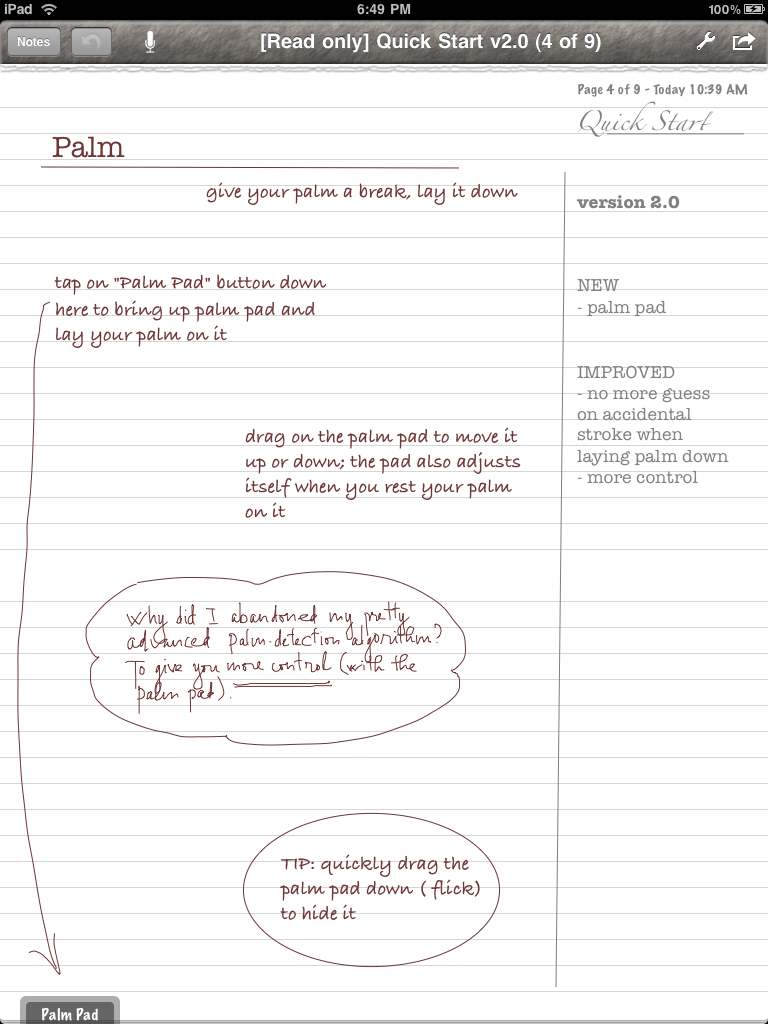 iPad 6:49 PM 100%
Notes [Read only] Quick Start v2.0 (4 of 9)
Page 4 of 9 - Today 10:39 AM
Quick Start
Palm
give your palm a break, lay it down
version 2.0
tap on "Palm Pad" button down
here to bring up palm pad and
lay your palm on it
NEW
- palm pad
IMPROVED
- no more guess
on accidental
stroke when
laying palm down
- more control
drag on the palm pad to move it
up or down; the pad also adjusts
itself when you rest your palm
on it
Why did I abandoned my pretty
advanced palm-detection algorithm?
To give you more control (with the
palm pad).
TIP: quickly drag the
palm pad down ( flick)
to hide it
Palm Pad